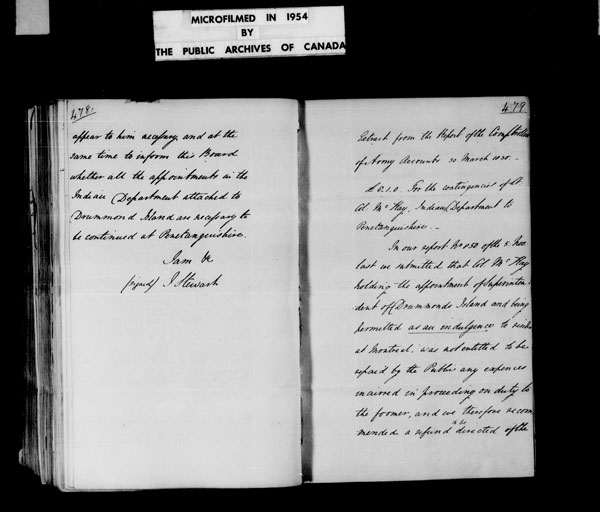 MICROFILMED IN 1954
BY
THE PUBLIC ARCHIVES OF CANADA
478.
appear to him necessary, and at the
same time to inform this Board
whether all the appointments in the
Indian Department attached to
Drummond Island are necessary to
be continued at Penetanguishire.
I am &c
(signed) J Stewart
479
Extract from the Report of the Comptrollers
of Army Accounts 20 March
For the contingencies of Lt.
Col. McKay, Indian Department to
Penetanguishire. -
In our report No of the 5. Nov.
last we submitted that Col. McKay
holding the appointment of Superinten-
dent of Drummonds Island and being
permitted as an indulgence to reside
at Montreal. was not entitled to be
repaid by the Public any expences
incurred in proceeding on duty to
the former, and we therefore recom
mended a refund to be directed of the